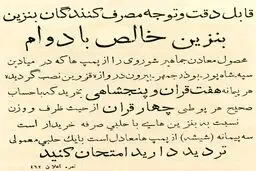 قابل دقت و توجه مصرف کنندگان بنزین
بنزین خالص با دوام
محصول معادن جماهیر شوروی را از پمپ هائکه در میادین
سپه، شاپور، بوذرجمهر، بیرون دروازه قزوین نصب گردیده
هر پیمانه هفت قران و پنجشاهی بخرید که با حساب
صحیح هر پوطی چهار قران از حیث ظرف و وزن
نسبت به بنزین هائی با حلبی صرفه خریدار است
سه پیمانه (شیشه) از پمپ ها معادل است با یك حلبی معمولی
تردید دارید امتحان کنید
نمره اعلان ۴۶۲